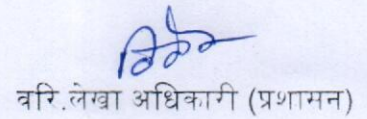 वरि.लेखा अधिकारी (प्रशासन)